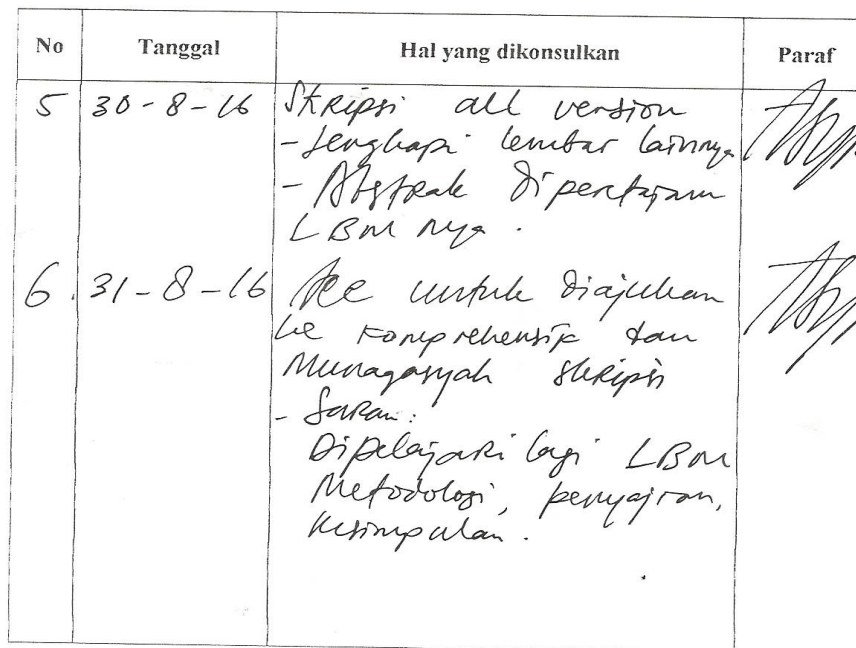 No Tanggal Hal yang dikonsulkan Paraf
5 30-8-16 Skripsi all version
- Lengkapi lembar lainnya
- Abstrak dipertajam
LBM nya.
6. 31-8-16 Acc untuk diajukan
ke komprehensif dan
Munaqasyah skripsi
- Saran:
Dipelajari lagi LBM
Metodologi, penyajian,
kesimpulan.